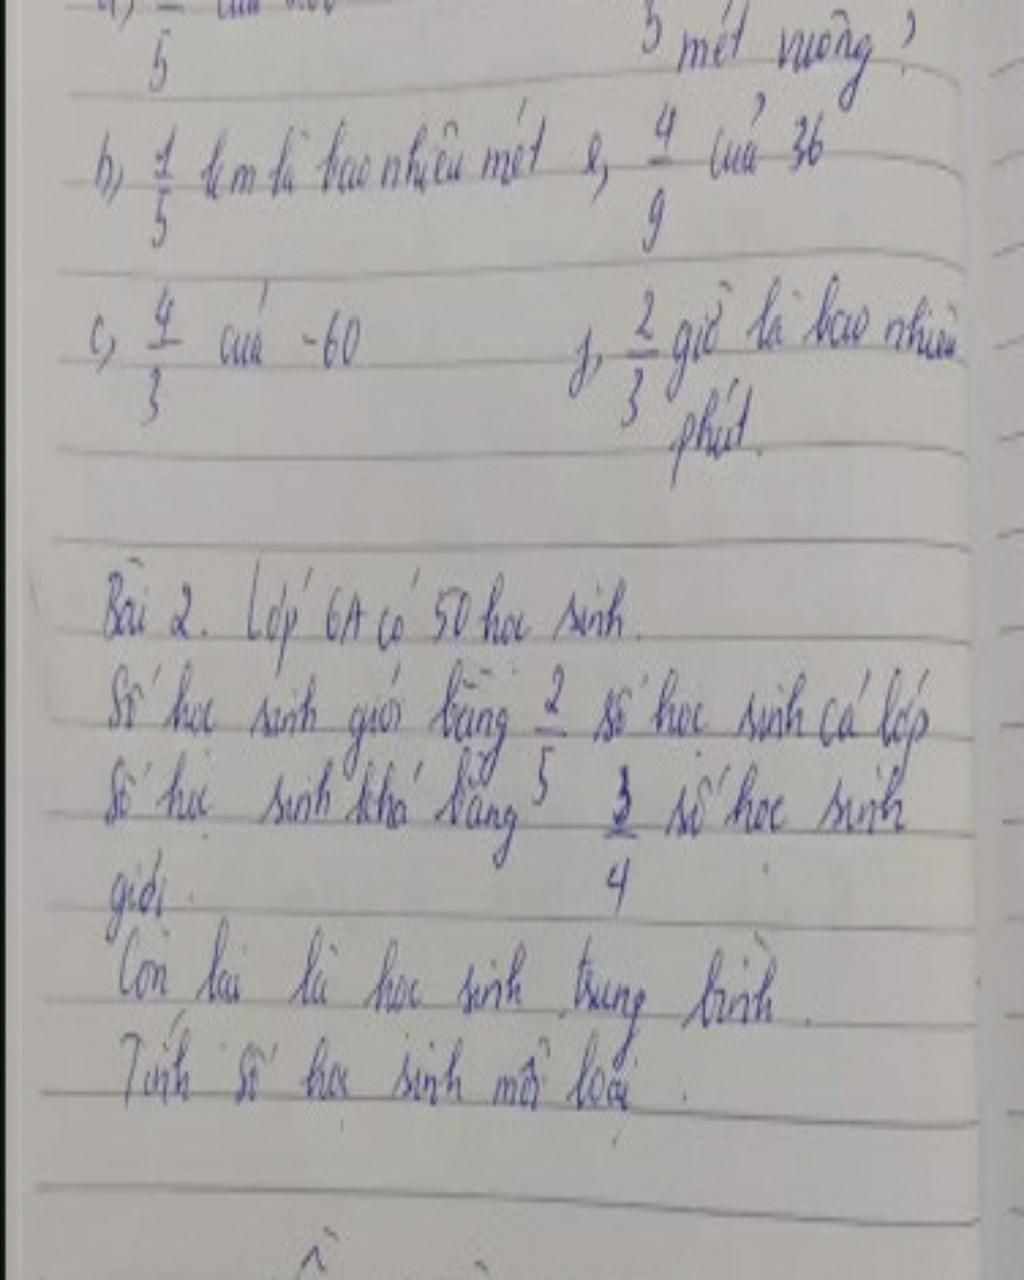 5
5 mét vuông?
b, 1/5 km là bao nhiêu mét e, 4/9 của 36
c, 4/3 của -60 f, 2/3 giờ là bao nhiêu
phút.
Bài 2. Lớp 6A có 50 học sinh.
Số học sinh giỏi bằng 2/5 số học sinh cả lớp
Số học sinh khá bằng 3/4 số học sinh
giỏi.
Còn lại là học sinh trung bình.
Tính số học sinh mỗi loại.